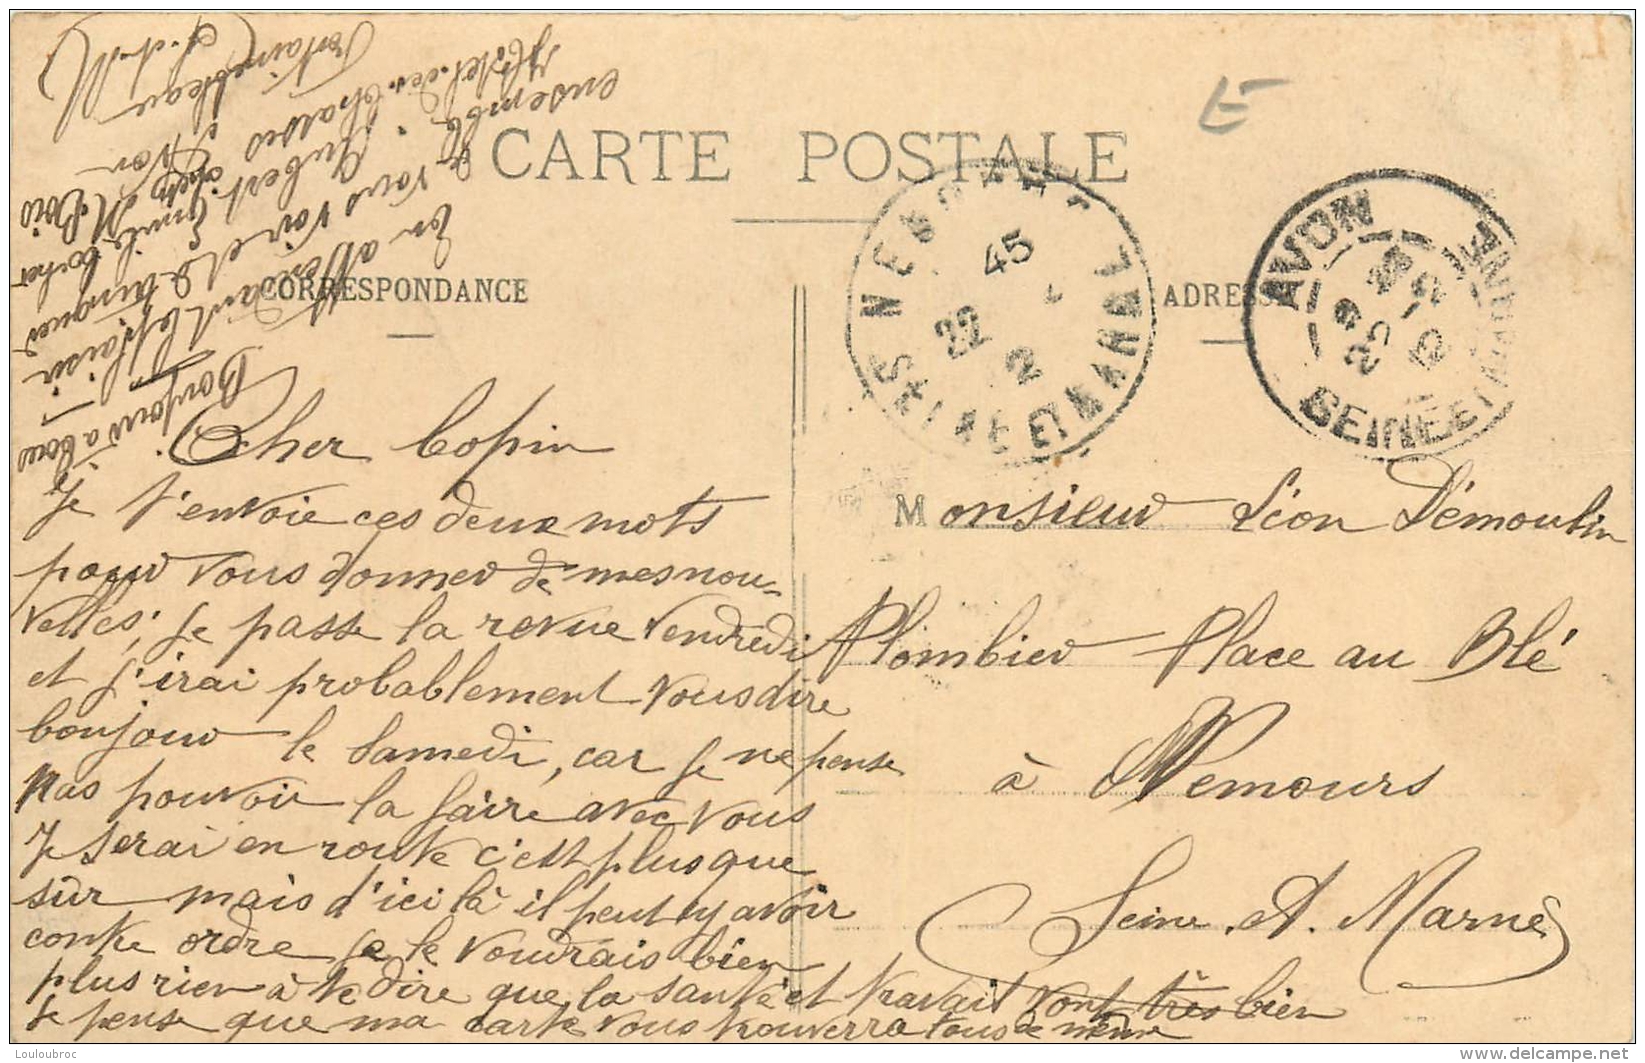 CARTE POSTALE
CORRESPONDANCE
ADRESSE
NEMOURS
SEINE ET MARNE
45
22
2
AVON
SEINE ET MARNE
E
Cher Copin
Je t'envoie ces deux mots
pour vous donner de mes nou-
velles; je passe la revue vendredi
et j'irai probablement vous dire
bonjour le Samedi, car je ne pense
pas pouvoir la faire avec vous
Je serai en route c'est plus que
sûr mais d'ici là il peut y avoir
contre ordre je le voudrais bien
plus rien à te dire que la santé et travail vont très bien
Je pense que ma carte vous trouvera tous de même
Bonjour à tous
En attendant le plaisir
de vous voir et de trinquer
ensemble
Hubert Emile cocher
Hotel des Chasses
Avon
Fontainebleau
(S. et M)
Monsieur Léon Démoulin
Plombier Place au Blé
à Nemours
Seine et Marne
Louloubroc
delcampe.net